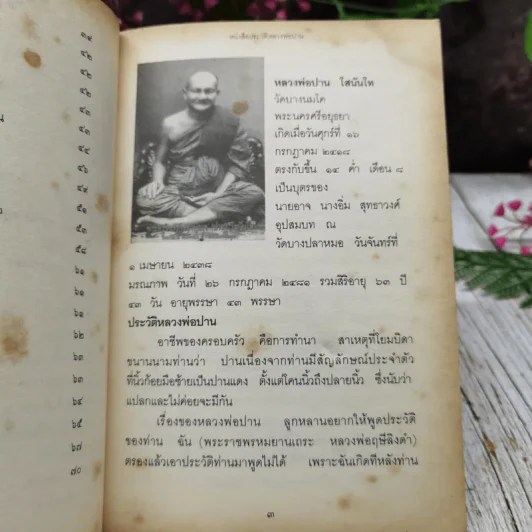 ๓๙
๔๒
๔๒
๔๓
๔๓
๔๔
๔๘
๔๙
๕๑
๕๑
๕๘
๖๑
๖๑
๖๓
๖๓
๖๔
๖๕
๖๗
๗๐
หลวงพ่อปาน โสนันโท
วัดบางนมโค
พระนครศรีอยุธยา
เกิดเมื่อวันศุกร์ที่ ๑๖
กรกฎาคม ๒๔๑๘
ตรงกับขึ้น ๑๔ ค่ำ เดือน ๘
เป็นบุตรของ
นายอาจ นางอิ่ม สุทธาวงศ์
อุปสมบท ณ
วัดบางปลาหมอ วันจันทร์ที่
๑ เมษายน ๒๔๓๘
มรณภาพ วันที่ ๒๖ กรกฎาคม ๒๔๘๑ รวมสิริอายุ ๖๓ ปี
๔๓ วัน อายุพรรษา ๔๓ พรรษา
ประวัติหลวงพ่อปาน
อาชีพของครอบครัว คือการทำนา สาเหตุที่โยมบิดา
ขนานนามท่านว่า ปานเนื่องจากท่านมีสัญลักษณ์ประจำตัว
ที่นิ้วก้อยมือซ้ายเป็นปานแดง ตั้งแต่โคนนิ้วถึงปลายนิ้ว ซึ่งนับว่า
แปลกและไม่ค่อยจะมีกัน
เรื่องของหลวงพ่อปาน ลูกหลานอยากให้พูดประวัติ
ของท่าน ฉัน (พระราชพรหมยานเถระ หลวงพ่อฤษีลิงดำ)
ตรองแล้วเอาประวัติท่านมาพูดไม่ได้ เพราะฉันเกิดทีหลังท่าน
๓